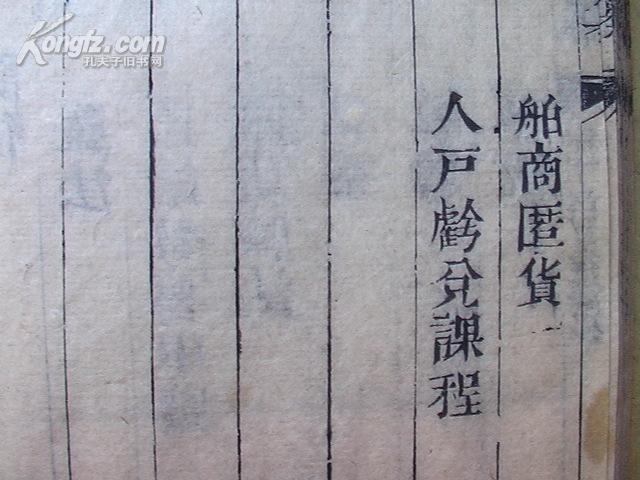 舶商匿貨
人戸虧兌課程
Kongfz.com
孔夫子旧书网